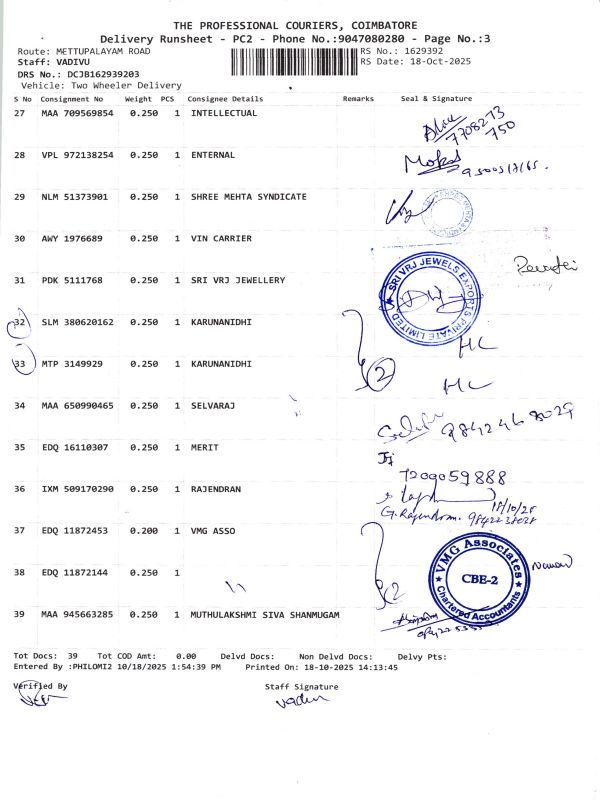 THE PROFESSIONAL COURIERS, COIMBATORE
Delivery Runsheet - PC2 - Phone No.:9047080280 - Page No.:3
Route: METTUPALAYAM ROAD RS No.: 1629392
Staff: VADIVU RS Date: 18-Oct-2025
DRS No.: DCJB162939203
Vehicle: Two Wheeler Delivery
S No Consignment No Weight PCS Consignee Details Remarks Seal & Signature
27 MAA 709569854 0.250 1 INTELLECTUAL
7708273
750
28 VPL 972138254 0.250 1 ENTERNAL
29 NLM 51373901 0.250 1 SHREE MEHTA SYNDICATE
30 AWY 1976689 0.250 1 VIN CARRIER
31 PDK 5111768 0.250 1 SRI VRJ JEWELLERY
SRI VRJ JEWELS EXPORTS PRIVATE LIMITED
32 SLM 380620162 0.250 1 KARUNANIDHI
HC
33 MTP 3149929 0.250 1 KARUNANIDHI
2
HC
34 MAA 650990465 0.250 1 SELVARAJ
9842468029
35 EDQ 16110307 0.250 1 MERIT
7209059888
36 IXM 509170290 0.250 1 RAJENDRAN
18/10/25
G. Rajendran.
37 EDQ 11872453 0.200 1 VMG ASSO
VMG Associates
CBE-2
Chartered Accountants
38 EDQ 11872144 0.250 1
2
39 MAA 945663285 0.250 1 MUTHULAKSHMI SIVA SHANMUGAM
Tot Docs: 39 Tot COD Amt: 0.00 Delvd Docs: Non Delvd Docs: Delvy Pts:
Entered By :PHILOMI2 10/18/2025 1:54:39 PM Printed On: 18-10-2025 14:13:45
Verified By Staff Signature